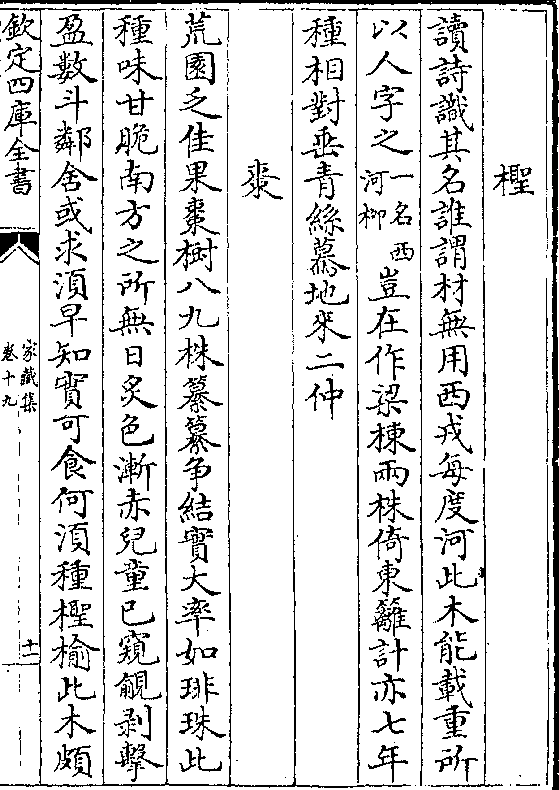 檉
讀詩識其名誰謂材無用西戎每度河此木能載重所
以人字之一名西河栁豈在作梁棟兩株倚東籬計亦七年
種相對垂青絲驀地來二仲
棗
荒園乏佳果棗樹八九株纂纂爭結實大率如琲珠此
種味甘脆南方之所無日炙色漸赤兒童已窺覦剥擊
盈數斗鄰舍或求須早知實可食何須種檉榆此木頗
欽定四庫全書
家藏集
卷十九
十二